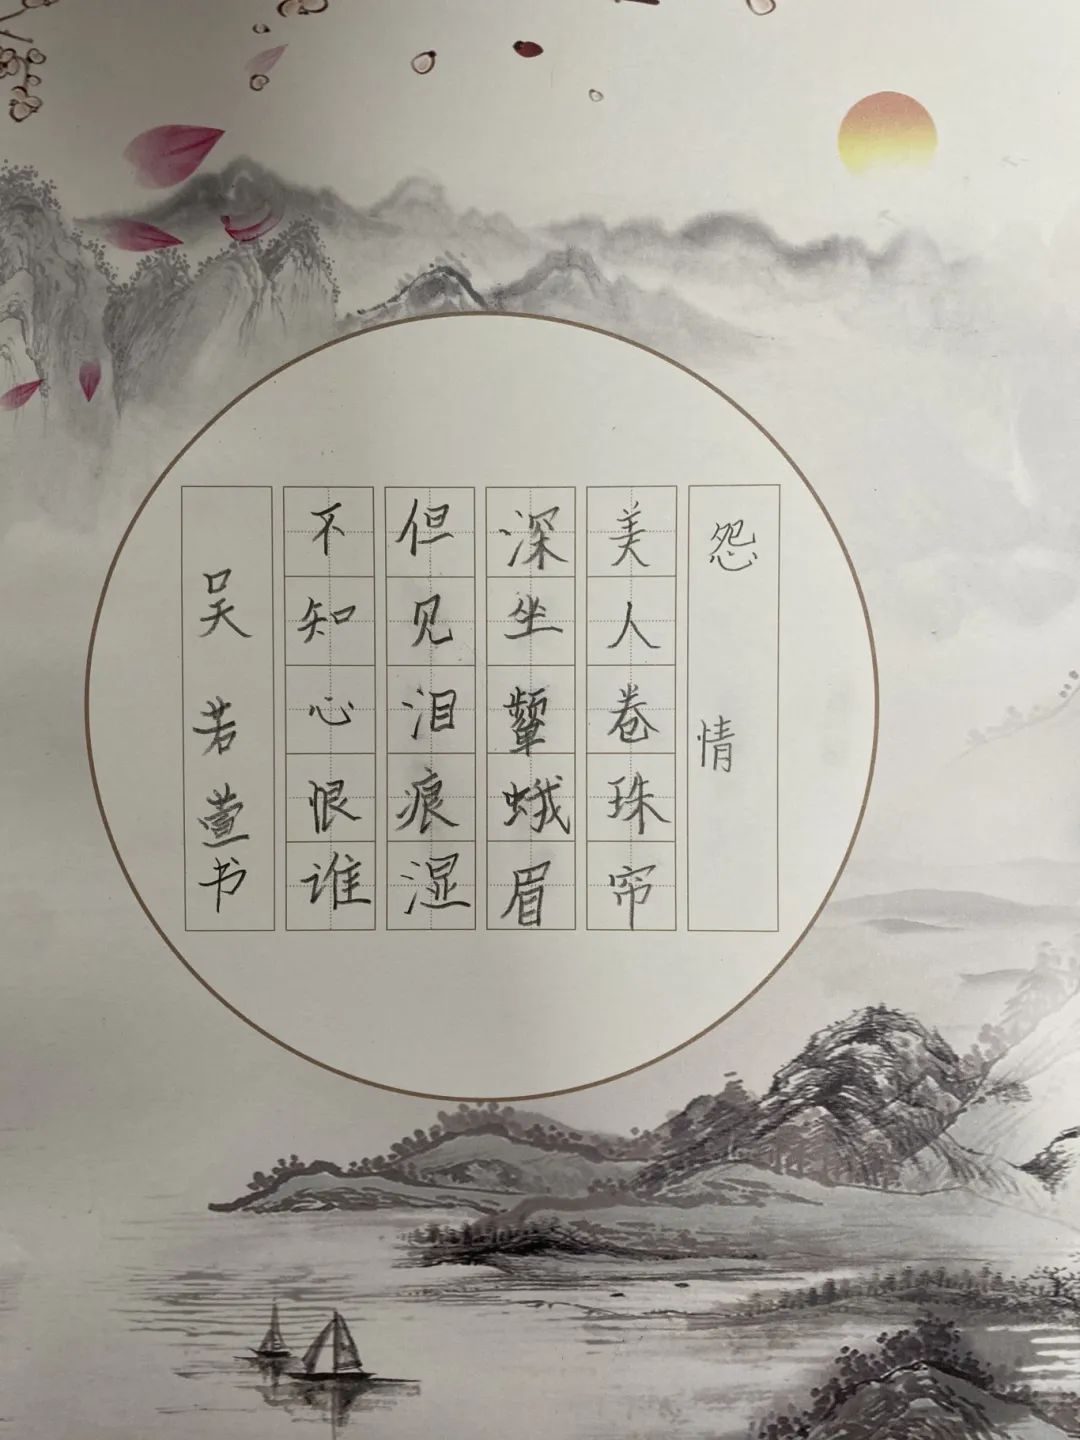 怨情
美人卷珠帘
深坐颦蛾眉
但见泪痕湿
不知心恨谁
吴若萱书